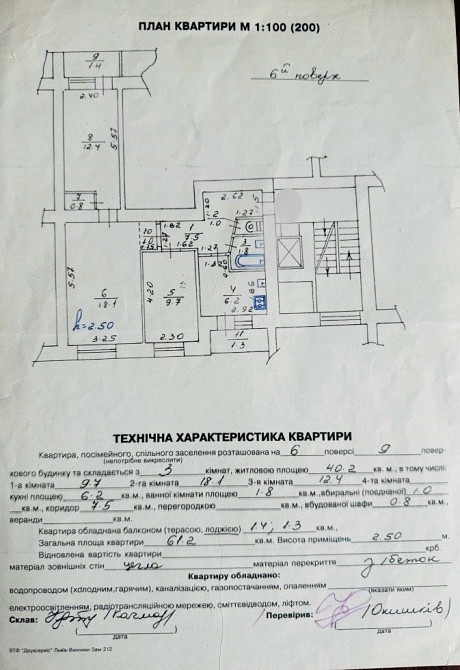 ПЛАН КВАРТИРИ М 1:100 (200)
6й поверх
9
1.4
2.40
8
12.4
5.57
7
0.8
2.62
1.20
2
1.0
1.27
1.82
1
7.5
10
1.0
1.27
1.62
1.27
3
1.8
5.57
6
18.1
4.20
5
9.7
4
6.2
h=2.50
3.25
2.30
2.92
11
1.3
ТЕХНІЧНА ХАРАКТЕРИСТИКА КВАРТИРИ
Квартира, посімейного, спільного заселення розташована на 6 поверсі 9 повер-
(непотрібне викреслити)
хового будинку та складається з 3 кімнат, житловою площею 40.2 кв. м., в тому числі:
1-а кімната 9.7 2-га кімната 18.1 3-я кімната 12.4 4-та кімната
кухні площею 6.2 кв.м., ванної кімнати площею 1.8 кв.м.,вбиральні (поєднаної) 1.0
кв.м., коридор 7.5 кв.м., перегородкою кв.м., вбудованої шафи 0.8 кв.м.,
веранди кв.м.
Квартира обладнана балконом (терасою, лоджією) 1.4; 1.3 кв.м.,
Загальна площа квартири 61.2 кв.м. Висота приміщень 2.50 м.
Відновлена вартість квартири крб.
матеріал зовнішніх стін цегла матеріал перекриття з/бетон
Квартиру обладнано:
водопроводом (холодним,гарячим), каналізацією, газопостачанням, опаленням
(вказати яким)
електроосвітленням, радіотрансляційною мережею, сміттєвідводом, ліфтом.
Склав: Перевірив:
дата дата
ВТФ "Друксервіс" Львів-Винники Зам 212